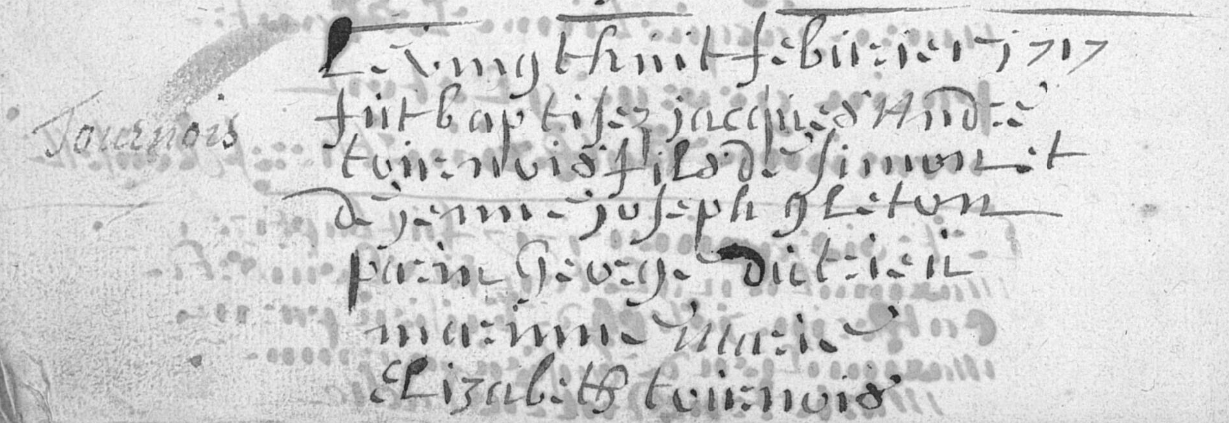 Le vingt huit febvrier 1717
Tournois
fut baptisez jacques André
tournois fils de simon et
de jenne joseph gleton
parin George dutrieu
marinne Marie
Elizabeth tournois